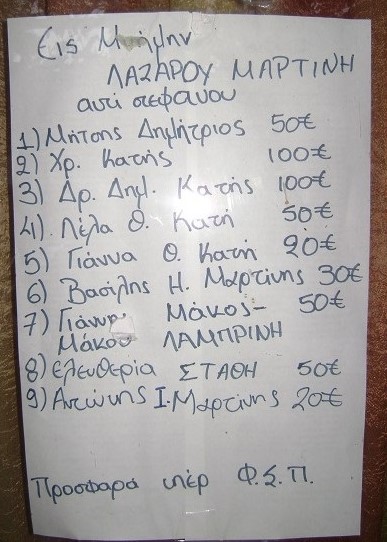 Εις Μνήμην
ΛΑΖΑΡΟΥ ΜΑΡΤΙΝΗ
αντί στεφάνου
1) Μήτσης Δημήτριος 50€
2) Χρ. Κατής 100€
3) Δρ. Δημ. Κατής 100€
4) Λέλα Θ. Κατή 50€
5) Γιάννα Θ. Κατή 20€
6) Βασίλης Η. Μαρτίνης 30€
7) Γιάννα Μάκος- 50€
Μάκου ΛΑΜΠΡΙΝΗ
8) Ελευθερία ΣΤΑΘΗ 50€
9) Αντώνης Ι. Μαρτίνης 20€
Προσφορά υπέρ Φ.Σ.Π.